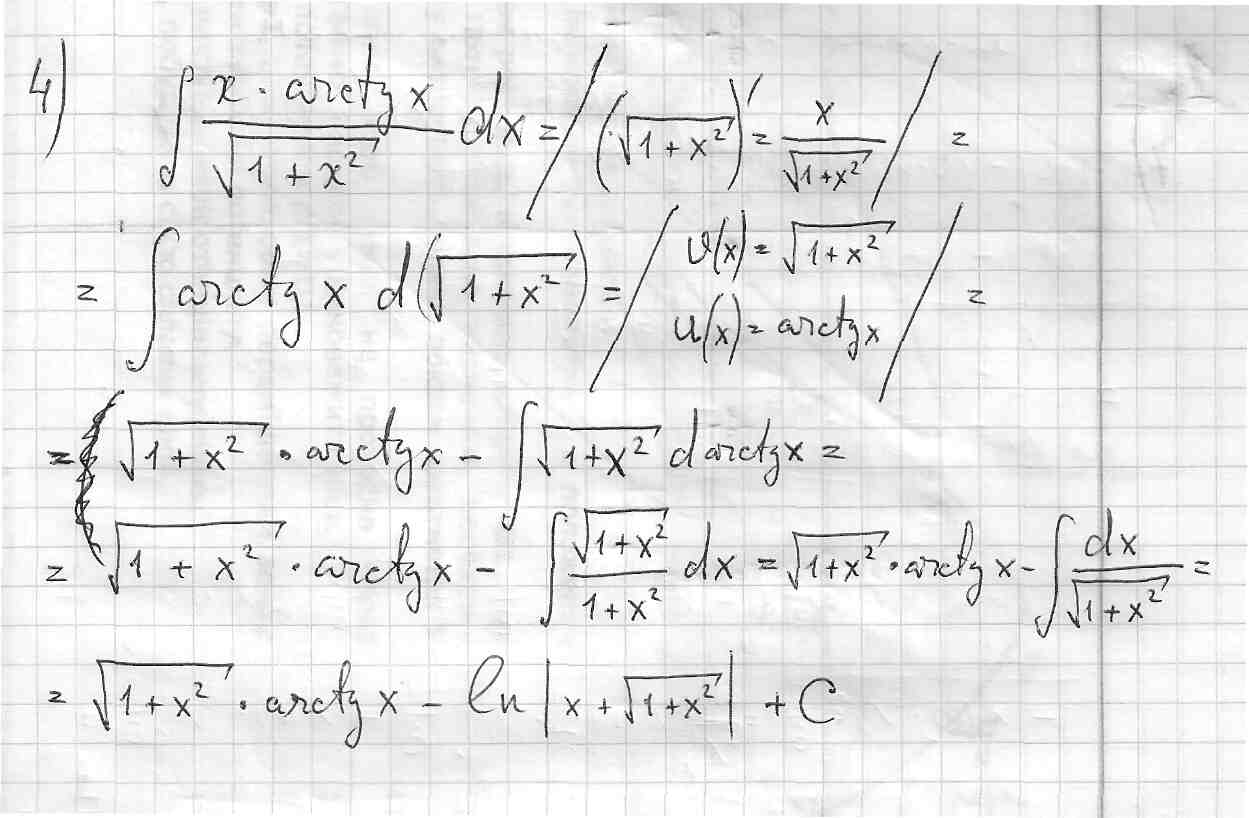 4) ∫ (x · arctg x)/√(1 + x²) dx = / (√(1 + x²))' = x/√(1+x²) / =
= ∫ arctg x d(√(1 + x²)) = / v(x) = √(1+x²) u(x) = arctg x / =
= √(1+x²) · arctg x − ∫ √(1+x²) d arctg x =
= √(1 + x²) · arctg x − ∫ √(1+x²)/(1+x²) dx = √(1+x²) · arctg x − ∫ dx/√(1+x²) =
= √(1+x²) · arctg x − ln |x + √(1+x²)| + C